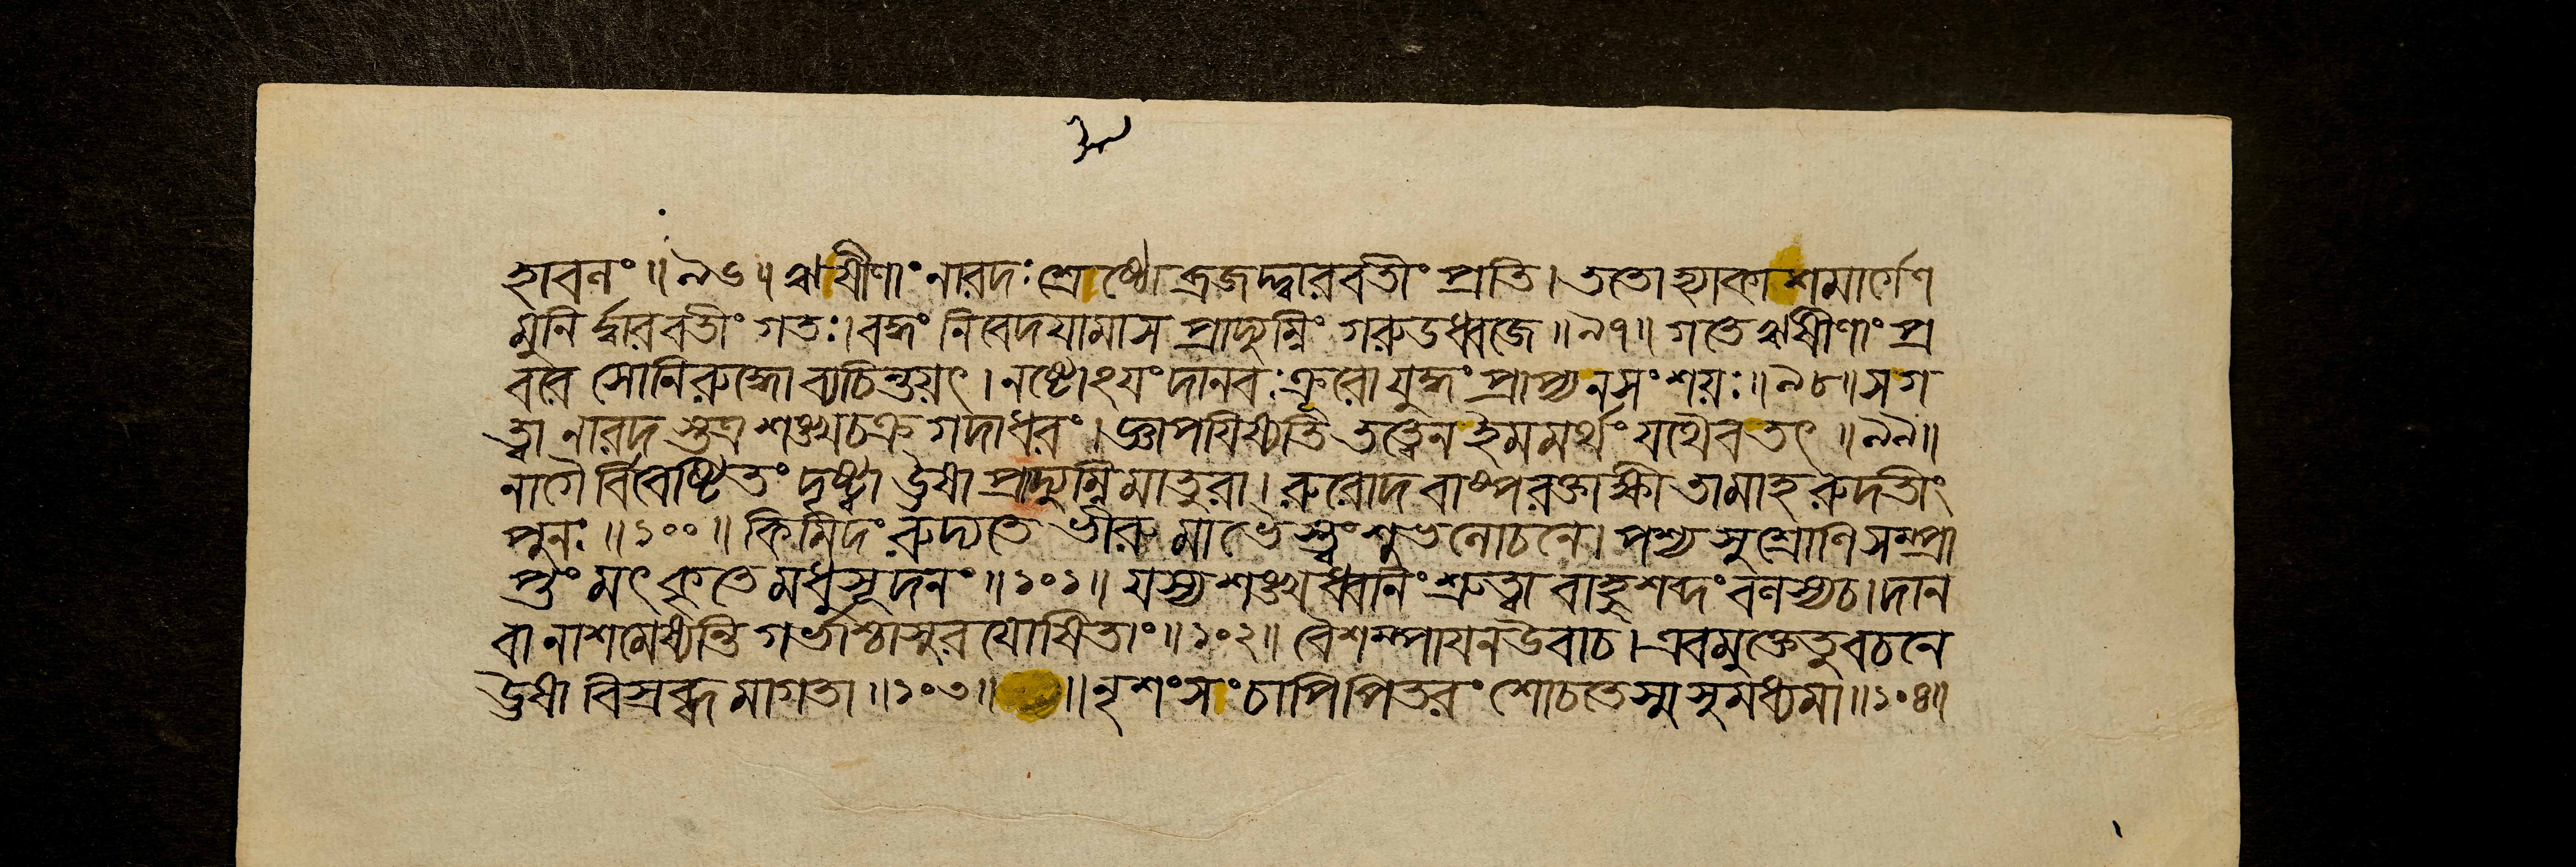 হাবনং ॥ ৯৬ ॥ ঋষীণাং নারদঃ শ্রেষ্ঠো ব্রজদ্দ্বারবতীং প্রতি। ততো হ্যাকাশমার্গেণ
মুনির্দ্দ্বারবতীং গতঃ। বদ্ধং নিবেদযামাস প্রাদ্যুম্নিং গরুডধ্বজে ॥ ৯৭ ॥ গতে ঋষীণাং প্র
বরে সোনিরুদ্ধো ব্যচিন্তয়ৎ। নষ্টোঽযং দানবঃ ক্রূরো যুদ্ধং প্রাপ্য ন সংশয়ঃ ॥ ৯৮ ॥ স গ
ত্বা নারদস্তত্র শঙ্খচক্রগদাধরং। জ্ঞাপযিষ্যতি তত্ত্বেন ইমমর্থং যথৈব তৎ ॥ ৯৯ ॥
নাগৈর্বিবেষ্টিতং দৃষ্ট্বা ঊষা প্রাদ্যুম্নিমাতুরা। রুরোদ বাষ্পরক্তাক্ষী তামাহ রুদতীং
পুনঃ ॥ ১০০ ॥ কিমিদং রুদ্যতে ভীরু মা ভৈস্ত্বং শুভলোচনে। পশ্য সুশ্রোণি সম্প্রা
প্তং মৎকৃতে মধুসূদনং ॥ ১০১ ॥ যস্য শঙ্খধ্বনিং শ্রুত্বা বাহুশব্দং বলস্য চ। দান
বা নাশমেষ্যন্তি গর্ভাশ্চাসুরযোষিতাং ॥ ১০২ ॥ বৈশম্পাযন উবাচ। এবমুক্তে তু বচনে
ঊষা বিস্রব্ধমাগতা ॥ ১০৩ ॥ ॥ নৃশংসং চাপি পিতরং শোচতে স্ম সুমধ্যমা ॥ ১০৪ ॥